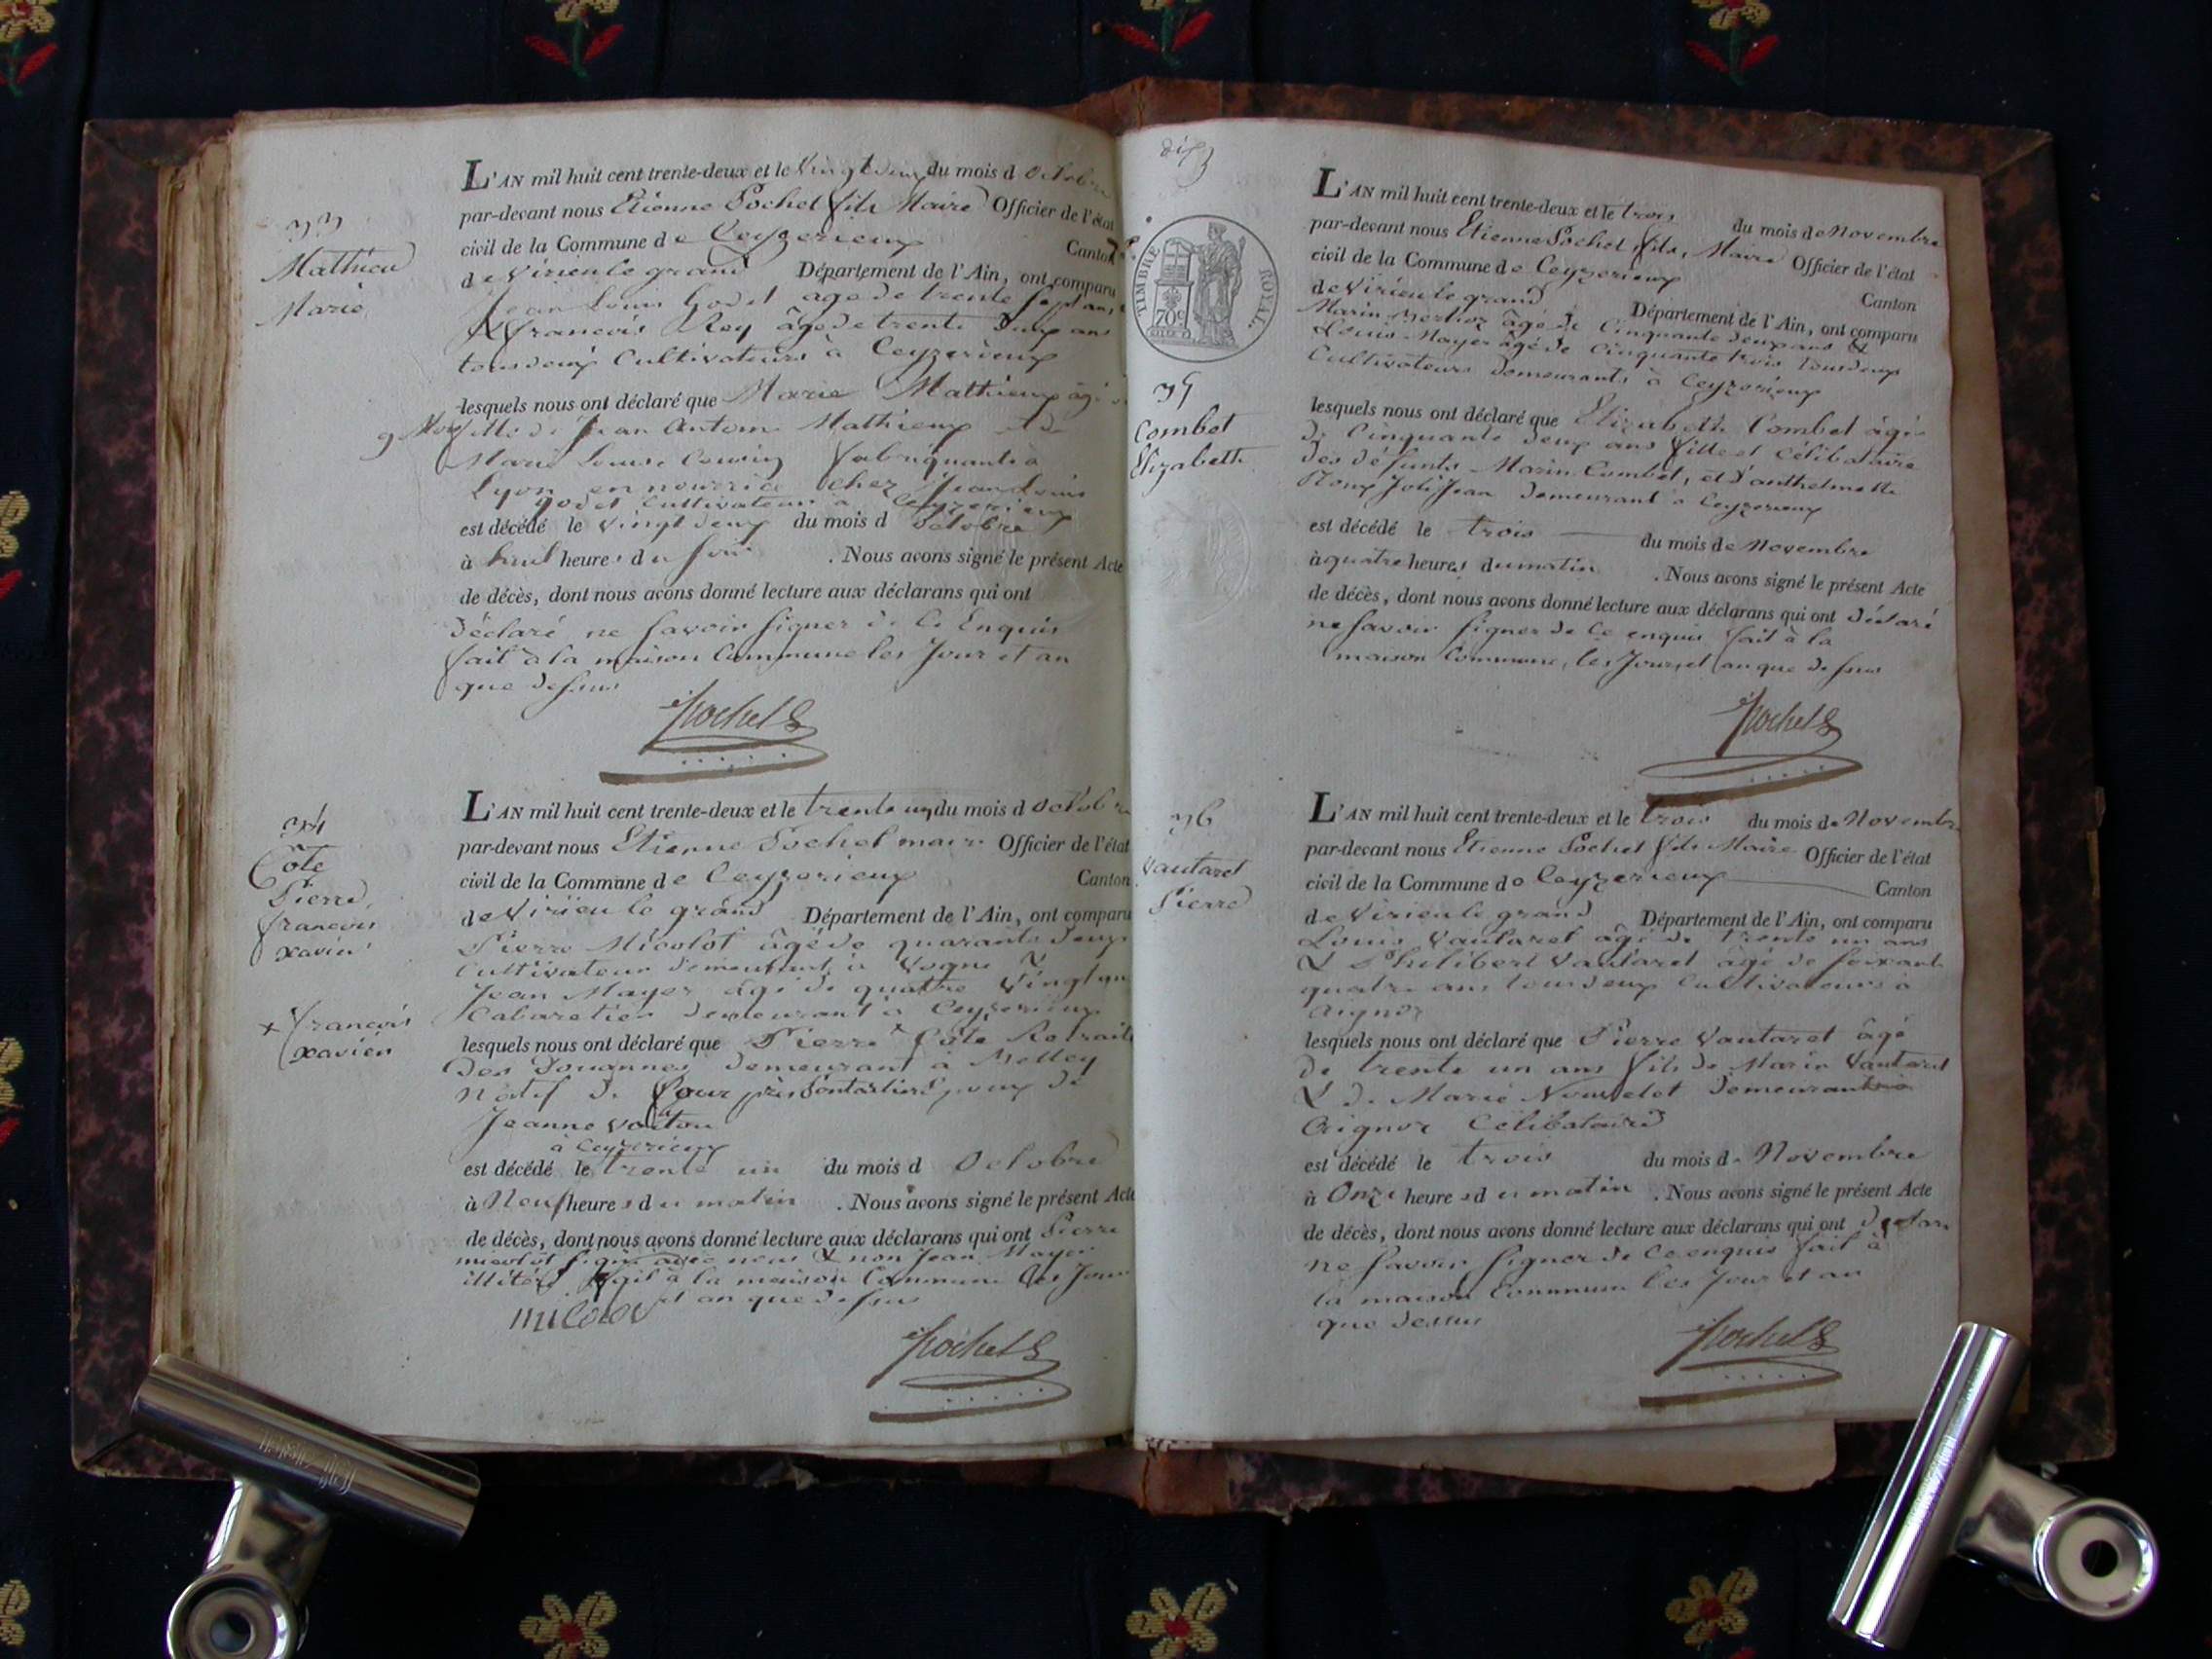 33
Mathieu
Marie
L'AN mil huit cent trente-deux et le vingt deux du mois d Octobre
par-devant nous Etienne Pochet fils Maire Officier de l'état
civil de la Commune de Ceyzerieux Canton
de Virieu le grand Département de l'Ain, ont comparu
Jean Louis Godet agé de trente sept ans
& francois Rey âgé de trente deux ans
tous deux Cultivateurs à Ceyzerieux
lesquels nous ont déclaré que Marie Mathieux âgé de
9 Mois fille de Jean Antoine Mathieux et de
Marie Louise Cousin fabriquants à
Lyon en nourrice chez Jean Louis
godet Cultivateur à Ceyzerieux
est décédé le vingt deux du mois d Octobre
à huit heures du soir . Nous avons signé le présent Acte
de décès, dont nous avons donné lecture aux déclarans qui ont
Déclaré ne savoir signer de ce Enquis
fait à la maison Commune les Jour et an
que dessus
Pochet
34
Côte
Pierre
francois
xavier
x francois
xavier
L'AN mil huit cent trente-deux et le trente un du mois d Octobre
par-devant nous Etienne Pochet maire Officier de l'état
civil de la Commune de Ceyzerieux Canton
de Virieu le grand Département de l'Ain, ont comparu
Pierre Micolot âgé de quarante deux
Cultivateur demeurant à Vogne &
Jean Mayer âgé de quatre Vingt un
Cabaretier demeurant à Ceyzerieux
lesquels nous ont déclaré que Pierre x Côte Retraité
Des Douannes demeurant à
Natif de près Pontarlier Epoux de
Jeanne
à Ceyzerieux
est décédé le trente un du mois d Octobre
à Neuf heures du matin . Nous avons signé le présent Acte
de décès, dont nous avons donné lecture aux déclarans qui ont Pierre
micolot signé avec nous & non Jean Mayer
illitéré fait à la maison Commune les Jour
et an que dessus
micolot
Pochet
TIMBRE ROYAL
70c
35
Combet
Elizabeth
L'AN mil huit cent trente-deux et le trois du mois de Novembre
par-devant nous Etienne Pochet fils, Maire Officier de l'état
civil de la Commune de Ceyzerieux Canton
de Virieu le grand Département de l'Ain, ont comparu
Marin Berlioz âgé de Cinquante deux ans &
Louis Mayer âgé de Cinquante trois Tous deux
Cultivateurs demeurants à Ceyzerieux
lesquels nous ont déclaré que Elizabeth Combet âgé
de Cinquante deux ans fille et Célibataire
des défunts Marin Combet, et d'anthelmette
Roux Joli Jean demeurant à Ceyzerieux
est décédé le trois du mois de Novembre
à quatre heures du matin . Nous avons signé le présent Acte
de décès, dont nous avons donné lecture aux déclarans qui ont déclaré
ne savoir signer de ce enquis fait à la
maison Commune, les Jour, et an que dessus
Pochet
36
Vautaret
Pierre
L'AN mil huit cent trente-deux et le trois du mois de Novembre
par-devant nous Etienne Pochet fils Maire Officier de l'état
civil de la Commune de Ceyzerieux Canton
de Virieu le grand Département de l'Ain, ont comparu
Louis Vautaret âgé de trente un ans
& Philibert Vautaret âgé de soixante
quatre ans tous deux Cultivateurs à
Aignoz
lesquels nous ont déclaré que Pierre Vautaret âgé
de trente un ans fils de Marin Vautaret
& de Marie Nouvelet demeurant à
Aignoz Célibataire
est décédé le trois du mois de Novembre
à Onze heures du matin . Nous avons signé le présent Acte
de décès, dont nous avons donné lecture aux déclarans qui ont déclaré
ne savoir signer de ce enquis fait à
la maison Commune les Jour et an
que dessus
Pochet